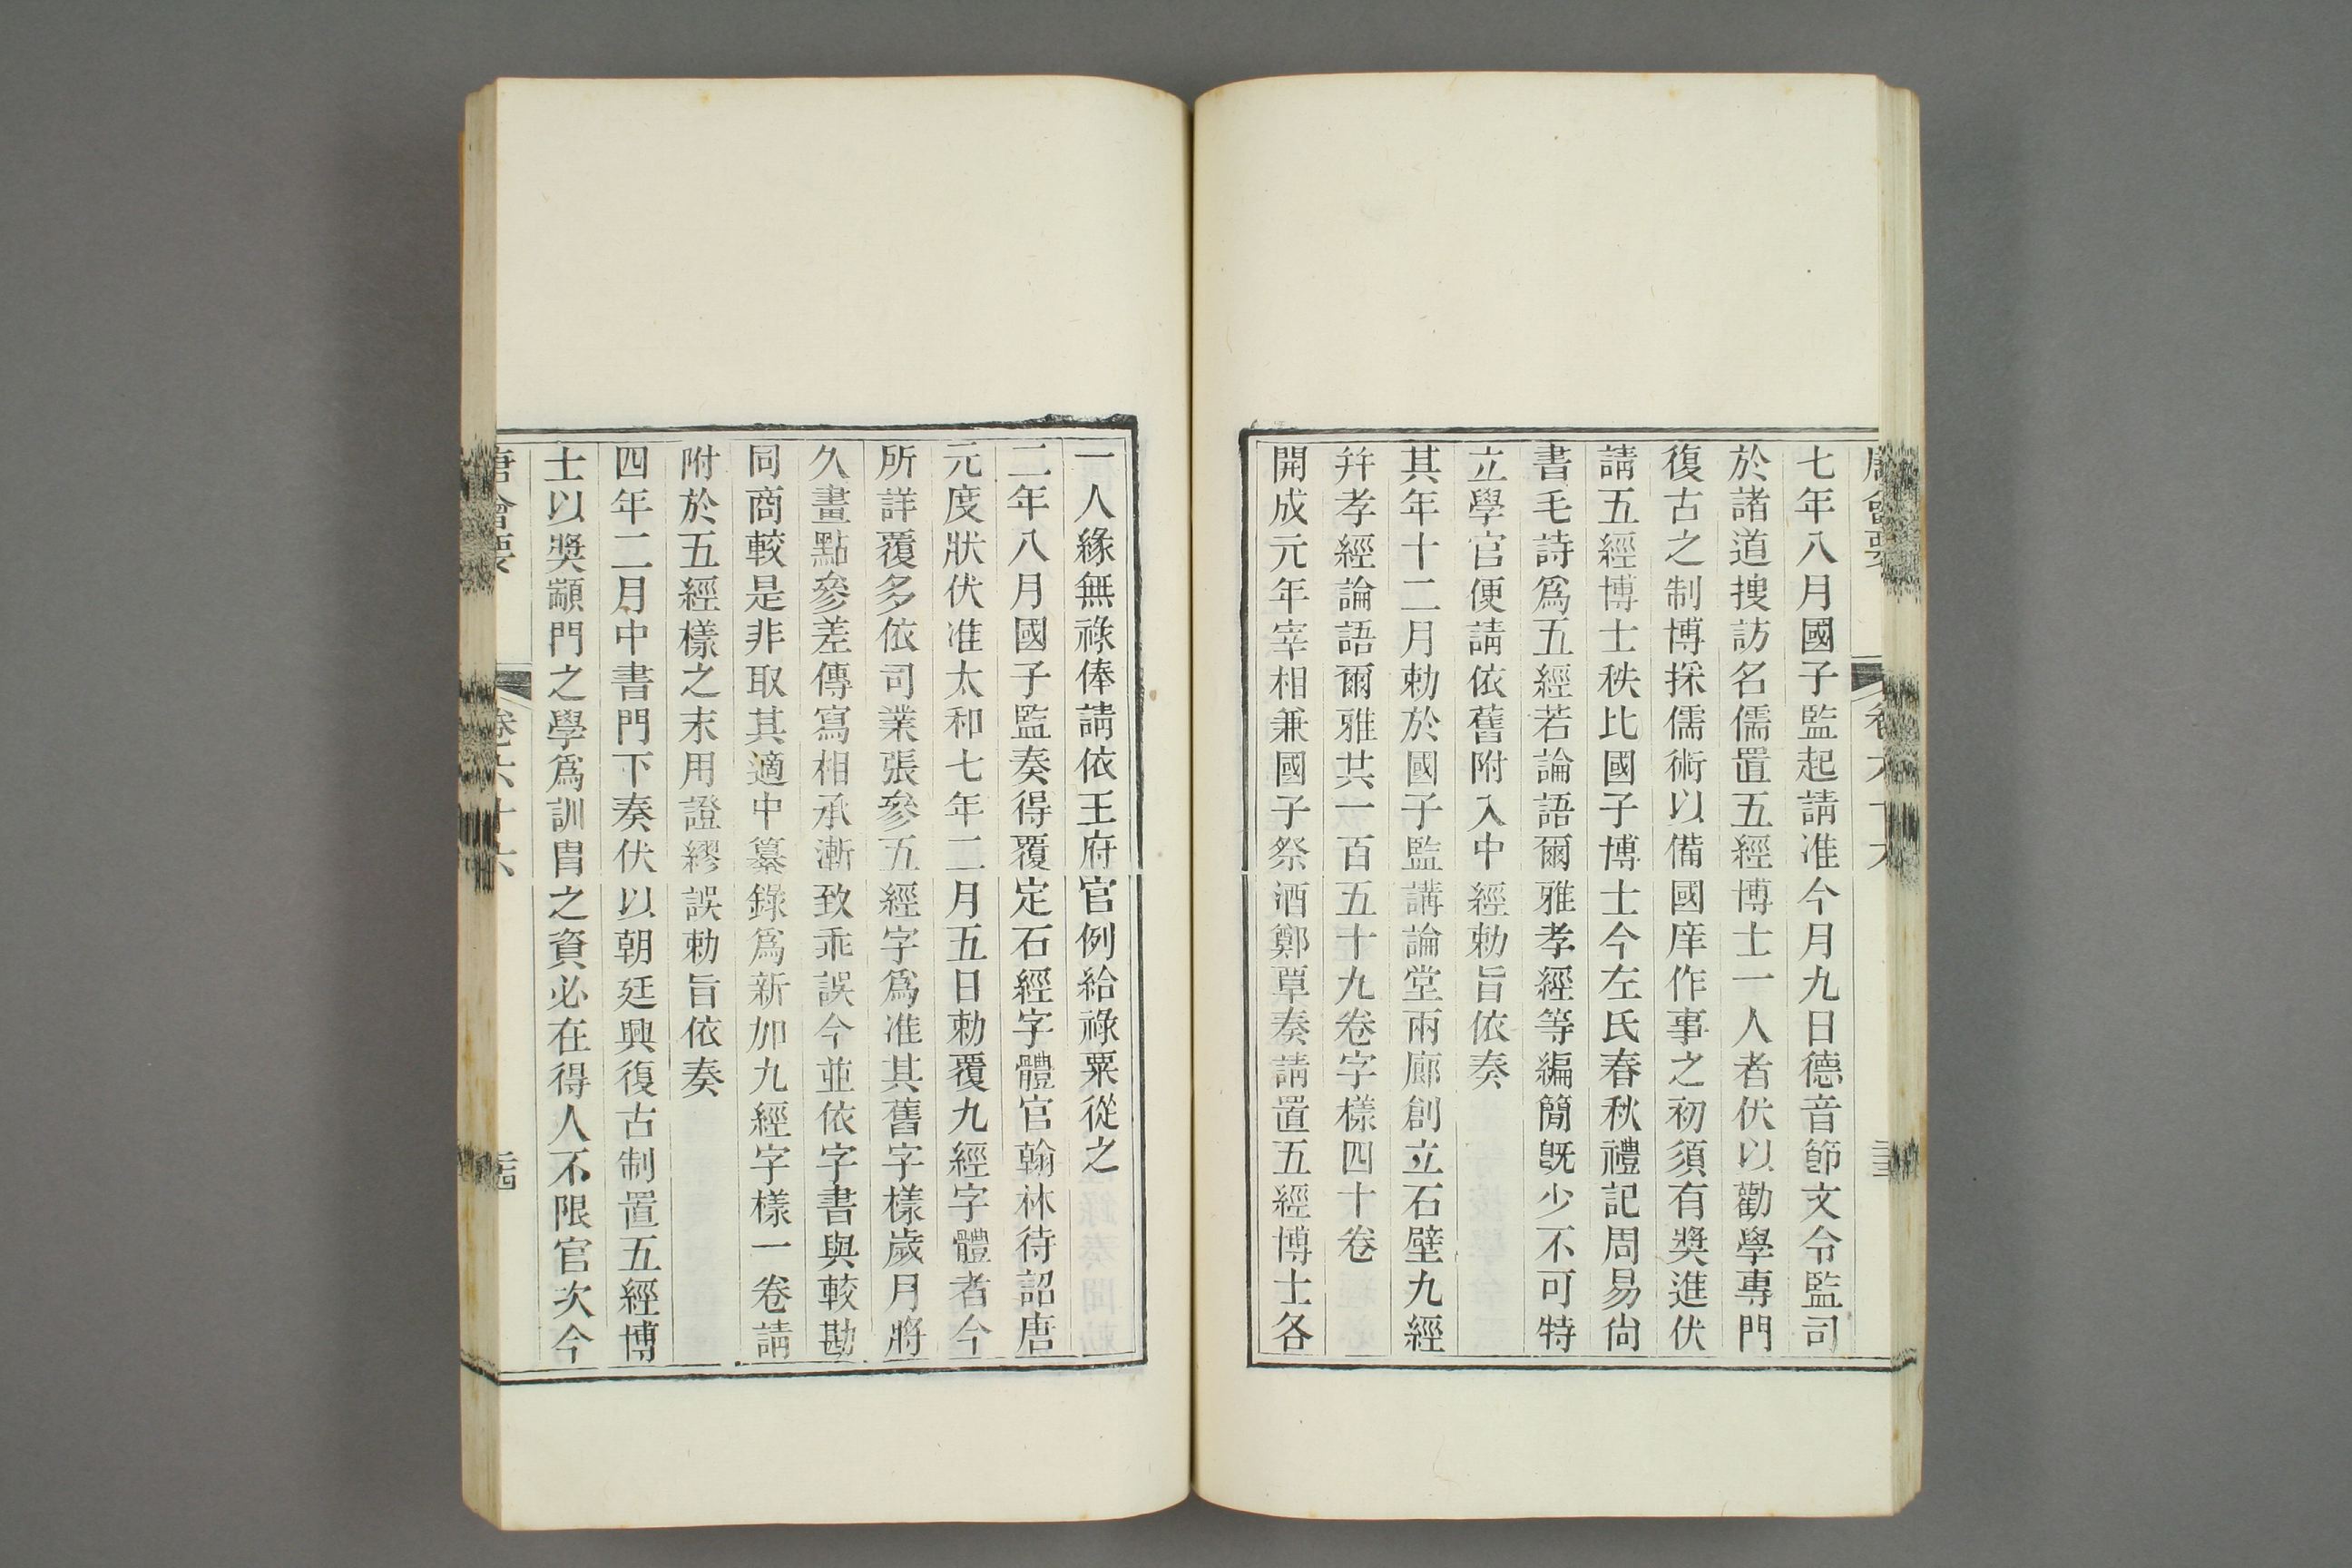 唐會要 卷六十六
七年八月國子監起請准今月九日德音節文令監司
於諸道搜訪名儒置五經博士一人者伏以勸學專門
復古之制博採儒術以備國庠作事之初須有獎進伏
請五經博士秩比國子博士今左氏春秋禮記周易尙
書毛詩爲五經若論語爾雅孝經等編簡旣少不可特
立學官便請依舊附入中經勅旨依奏
其年十二月勅於國子監講論堂兩廊創立石壁九經
幷孝經論語爾雅共一百五十九卷字樣四十卷
開成元年宰相兼國子祭酒鄭覃奏請置五經博士各
一人緣無祿俸請依王府官例給祿粟從之
二年八月國子監奏得覆定石經字體官翰林待詔唐
元度狀伏准太和七年二月五日勅覆九經字體者今
所詳覆多依司業張參五經字爲准其舊字樣歲月將
久畫點參差傳寫相承漸致乖誤今並依字書與較勘
同商較是非取其適中纂錄爲新加九經字樣一卷請
附於五經樣之末用證繆誤勅旨依奏
四年二月中書門下奏伏以朝廷興復古制置五經博
士以獎顓門之學爲訓胄之資必在得人不限官次今
唐會要 卷六十六